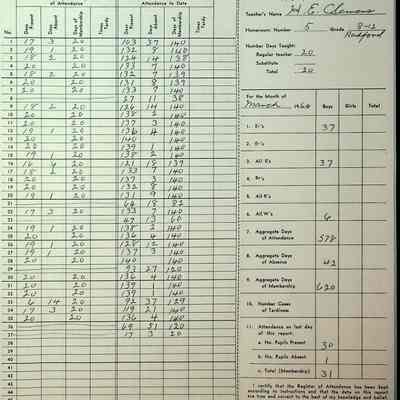 of Attendance Attendance to Date
No. Days Present Days Absent Days of Membership Times Tardy Days Present Days Absent Days of Membership Times Tardy
1 17 3 20 103 37 140
2 19 1 20 132 8 140
3 18 2 20 124 14 138
4 20 20 133 7 140
5 18 2 20 132 7 139
6 20 20 131 8 139
7 20 20 133 7 140
27 11 38
9 18 2 20 126 14 140
10 20 20 138 2 140
11 20 20 137 3 140
12 19 1 20 136 4 140
13 20 20 140 140
14 20 20 139 1 140
15 19 1 20 138 2 140
16 16 4 20 121 18 139
17 18 2 20 133 7 140
18 20 20 137 3 140
19 20 20 132 8 140
20 19 1 20 131 9 140
21 64 18 82
22 17 3 20 133 7 140
23 47 13 60
24 19 1 20 138 2 140
25 20 20 136 4 140
26 19 1 20 128 12 140
27 19 1 20 137 3 140
28 20 20 140 140
29 93 27 120
30 20 20 136 4 140
20 20 139 1 140
20 20 139 1 140
33 6 14 20 92 37 129
34 17 3 20 119 21 140
35 20 20 136 4 140
36 69 51 120
37 17 3 20
Teacher's Name H E Clemons
Homeroom Number 5 Grade 8-12
Number Days Taught:
Regular teacher 20
Substitute
Total 20
For the Month of
March Boys Girls Total
1. E1's 37
2. E2's
3. All E's 37
4. R1's
5. All R's
6. All W's 6
7. Aggregate Days of Attendance 578
8. Aggregate Days of Absence 42
9. Aggregate Days of Membership 620
10. Number Cases of Tardiness
11. Attendance on last day of this report:
a. No. Pupils Present 30
b. No. Pupils Absent 1
c. Total (Membership) 31
I certify that the Register of Attendance has been kept
according to instructions and that the data on this report
are true and correct to the best of my knowledge and belief.